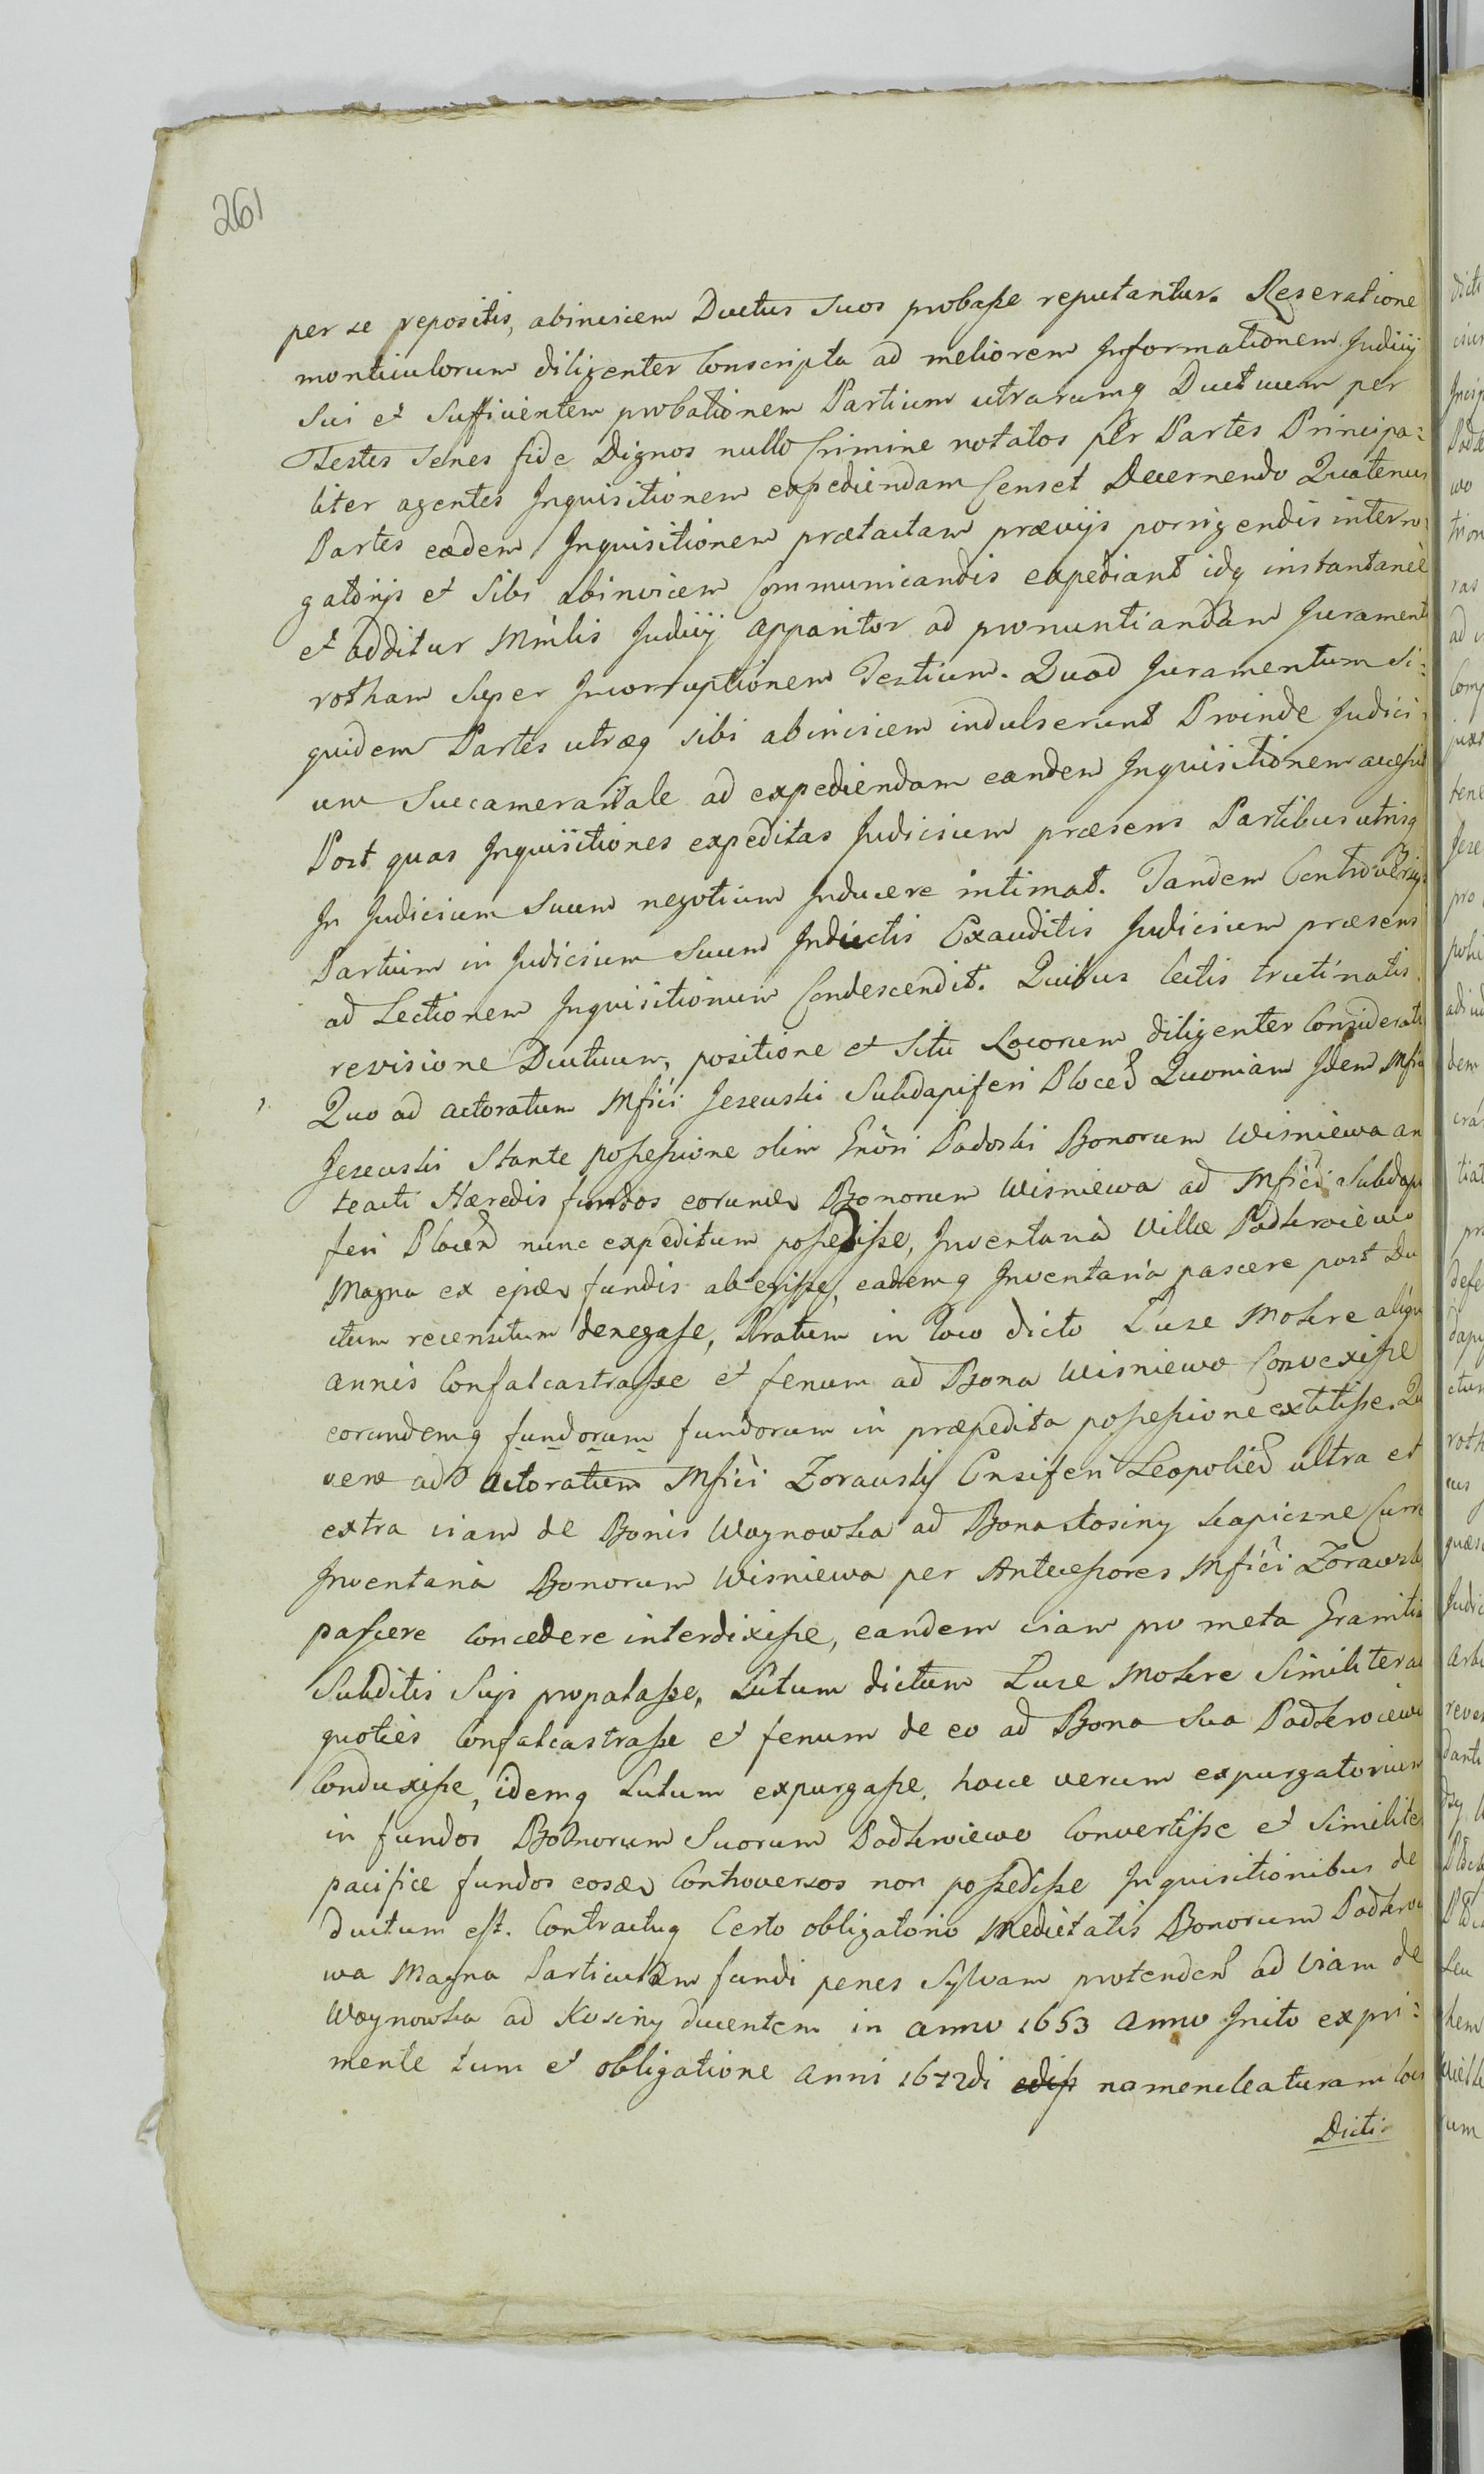 261
per se repositis, abinvicem Ductus suos probaße reputantur. Reseratione
monticulorum diligenter Conscripta ad meliorem Informationem Judicij
Sui et Sufficientem probationem Partium utrarumq Ductuum per
Testes Senes fide Dignos nullo Crimine notatos per Partes Principa:
liter agentes Inquisitionem expediendam Censet Decernendo Quatenus
Partes eædem Inquisitionem prætactam prævijs porrigendis interro:
gatorijs et Sibi abinvicem Communicandis expediant idq instantaneè
et additur Mnlis Judicij Apparitor ad pronuntiandam Jurament
rotham Super Incorruptionem Testium. Quod Juramentum Si:
quidem Partes utræq sibi abinvicem indulserunt Proinde Judici:
um Succamerariale ad expediendam eandem Inquisitionem acceßit
Post quas Inquisitiones expeditas Judicium præsens Partibus utrisq
In Judicium Suum negotium Inducere intimat. Tandem Controversijs
Partium in Judicium Suum Inductis Exauditis Judicium præsens
ad Lectionem Inquisitionum Condescendit. Quibus lectis trutinatis
revisione Ductuum, positione et Situ Locorum diligenter Considerati
Quo ad actoratum Mfici Jezewski Subdapiferi Ploceñ Quoniam Idem Mficus
Jezewski Stante poßeßione olim Gnõri Padoski Bonorum Wisniewa an
teacti Hæredis fundos eorunde Bonorum Wisniewa ad Mfici Subdapi
feri Ploceñ nunc expeditum poßediße, Inventaria Villæ Padkrwiewo
Magna ex ijsde fundis abegiße, eademq Inventaria pascere post Du
ctum recensitum denegaße, Pratum in loco dicto Luze Mokre aliqu
annis Confalcastraße et fenum ad Bona Wisniewo Convexiße
eorundemq fundorum fundorum in præpedita poßeßione extitiße. Qu
vero ad Actoratum Mfici Zorawskij Ensiferi Leopolieñ ultra et
extra viam de Bonis Woynowka ad Bona Kosiny Kapiczne Curre
Inventaria Bonorum Wisniewa per Anteceßores Mfici Zorawsk
pascere concedere interdixiße, eandem viam pro meta Granitia
Subditis Suis propalaße, Lutum dictum Luze Mokre Similiter al
quoties Confalcastraße et fenum de eo ad Bona Sua Padkrwiewo
Conduxiße, idemq Lutum expurgaße, hocce verum expurgatorium
in fundos Bonorum Suorum Padkrwiewo Convertiße et Similiter
pacifice fundos eosde Controversos non poßediße Inquisitionibus de
ductum est. Contractuq Certo obligatorio Medietatis Bonorum Padkrwi
wa Magna Particulam fundi penes Sylvam protendeñ ad viam de
Woynowka ad Kosiny ducentem in anno 1653 Anno Inito expri:
mente tum et obligatione Anni 1672di nomencleaturam loci
Dicti